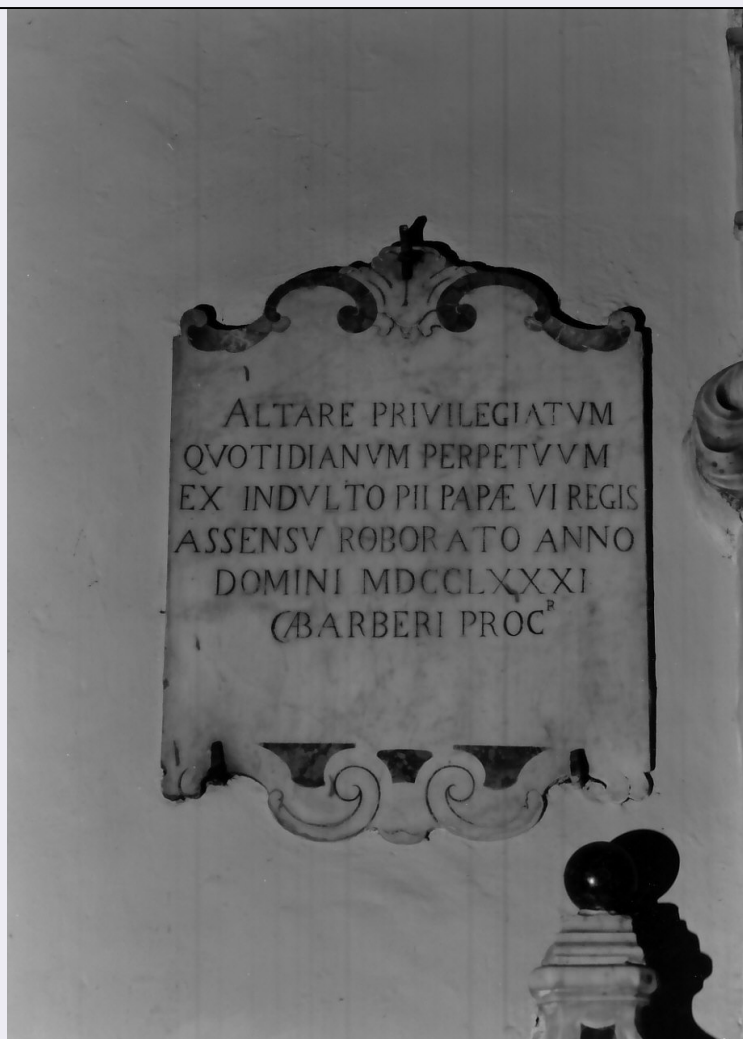 ALTARE PRIVILEGIATVM
QVOTIDIANVM PERPETVVM
EX INDVLTO PII PAPÆ VI REGIS
ASSENSV ROBORATO ANNO
DOMINI MDCCLXXXI
CABARBERI PROCᴿ